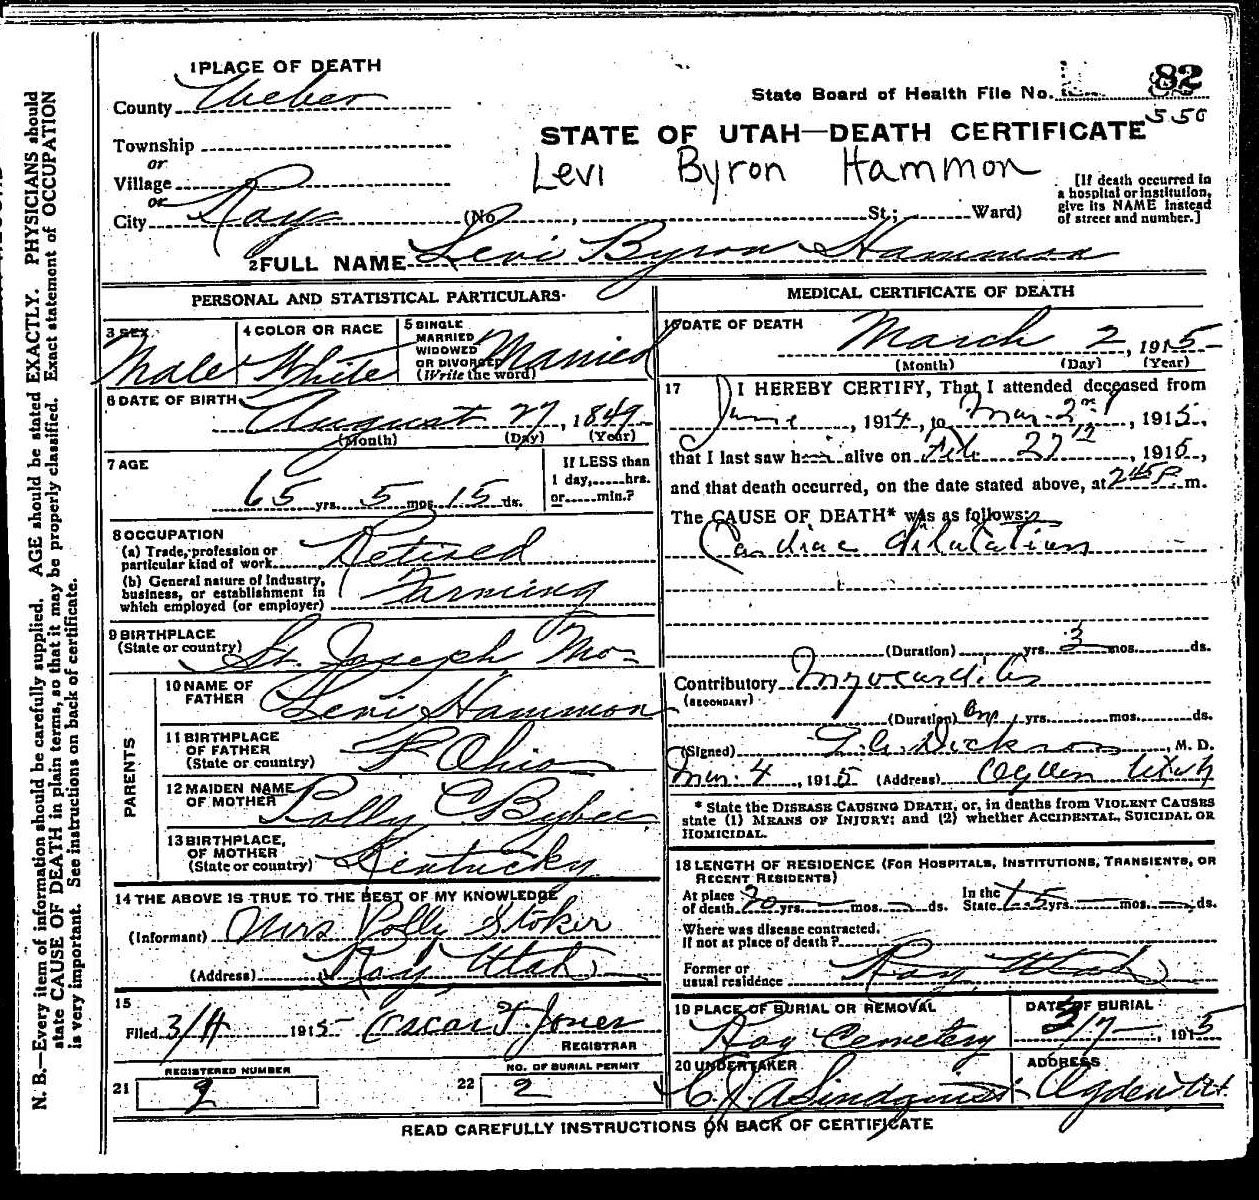 N. B.—Every item of information should be carefully supplied. AGE should be stated EXACTLY. PHYSICIANS should
state CAUSE OF DEATH in plain terms, so that it may be properly classified. Exact statement of OCCUPATION
is very important. See instructions on back of certificate.
1 PLACE OF DEATH
County Weber
Township
or
Village
or
City Roy
State Board of Health File No. 82
550
STATE OF UTAH—DEATH CERTIFICATE
Levi Byron Hammon
(No. , St.; Ward)
[If death occurred in
a hospital or institution,
give its NAME instead
of street and number.]
2 FULL NAME Levi Byron Hammon
PERSONAL AND STATISTICAL PARTICULARS
3 SEX
Male
4 COLOR OR RACE
White
5 SINGLE
MARRIED
WIDOWED
OR DIVORCED
(Write the word)
Married
6 DATE OF BIRTH
August 27, 1849
(Month) (Day) (Year)
7 AGE
65 yrs. 5 mos. 15 ds.
If LESS than
1 day,......hrs.
or......min.?
8 OCCUPATION
(a) Trade, profession or
particular kind of work Retired
(b) General nature of industry,
business, or establishment in
which employed (or employer) Farming
9 BIRTHPLACE
(State or country) St. Joseph Mo-
PARENTS
10 NAME OF
FATHER Levi Hammon
11 BIRTHPLACE
OF FATHER
(State or country) Ohio
12 MAIDEN NAME
OF MOTHER Polly C. Bybee
13 BIRTHPLACE,
OF MOTHER
(State or country) Kentucky
14 THE ABOVE IS TRUE TO THE BEST OF MY KNOWLEDGE
(Informant) Mrs Polly Stoker
(Address) Roy Utah
15
Filed 3/4 1915 Oscar F. Jones
REGISTRAR
REGISTERED NUMBER
21 2
NO. OF BURIAL PERMIT
22 2
MEDICAL CERTIFICATE OF DEATH
16 DATE OF DEATH
March 2, 1915
(Month) (Day) (Year)
17 I HEREBY CERTIFY, That I attended deceased from
June, 1914, to Mar. 2nd, 1915,
that I last saw him alive on Feb 27th, 1915,
and that death occurred, on the date stated above, at 2 45 P. m.
The CAUSE OF DEATH* was as follows:
Cardiac dilatation
(Duration) yrs. 3 mos. ds.
Contributory Myocarditis
(SECONDARY)
(Duration) yrs. mos. ds.
(Signed) Dickson, M. D.
Mar. 4, 1915 (Address) Ogden Utah
* State the DISEASE CAUSING DEATH, or, in deaths from VIOLENT CAUSES
state (1) MEANS OF INJURY; and (2) whether ACCIDENTAL, SUICIDAL OR
HOMICIDAL.
18 LENGTH OF RESIDENCE (FOR HOSPITALS, INSTITUTIONS, TRANSIENTS, OR
RECENT RESIDENTS)
At place
of death 20 yrs. mos. ds.
In the
State 65 yrs. mos. ds.
Where was disease contracted.
If not at place of death?
Former or
usual residence Roy Utah
19 PLACE OF BURIAL OR REMOVAL
Roy Cemetery
DATE OF BURIAL
3/7, 1915
20 UNDERTAKER
C. J. A Lindquist
ADDRESS
Ogden, Ut.
READ CAREFULLY INSTRUCTIONS ON BACK OF CERTIFICATE